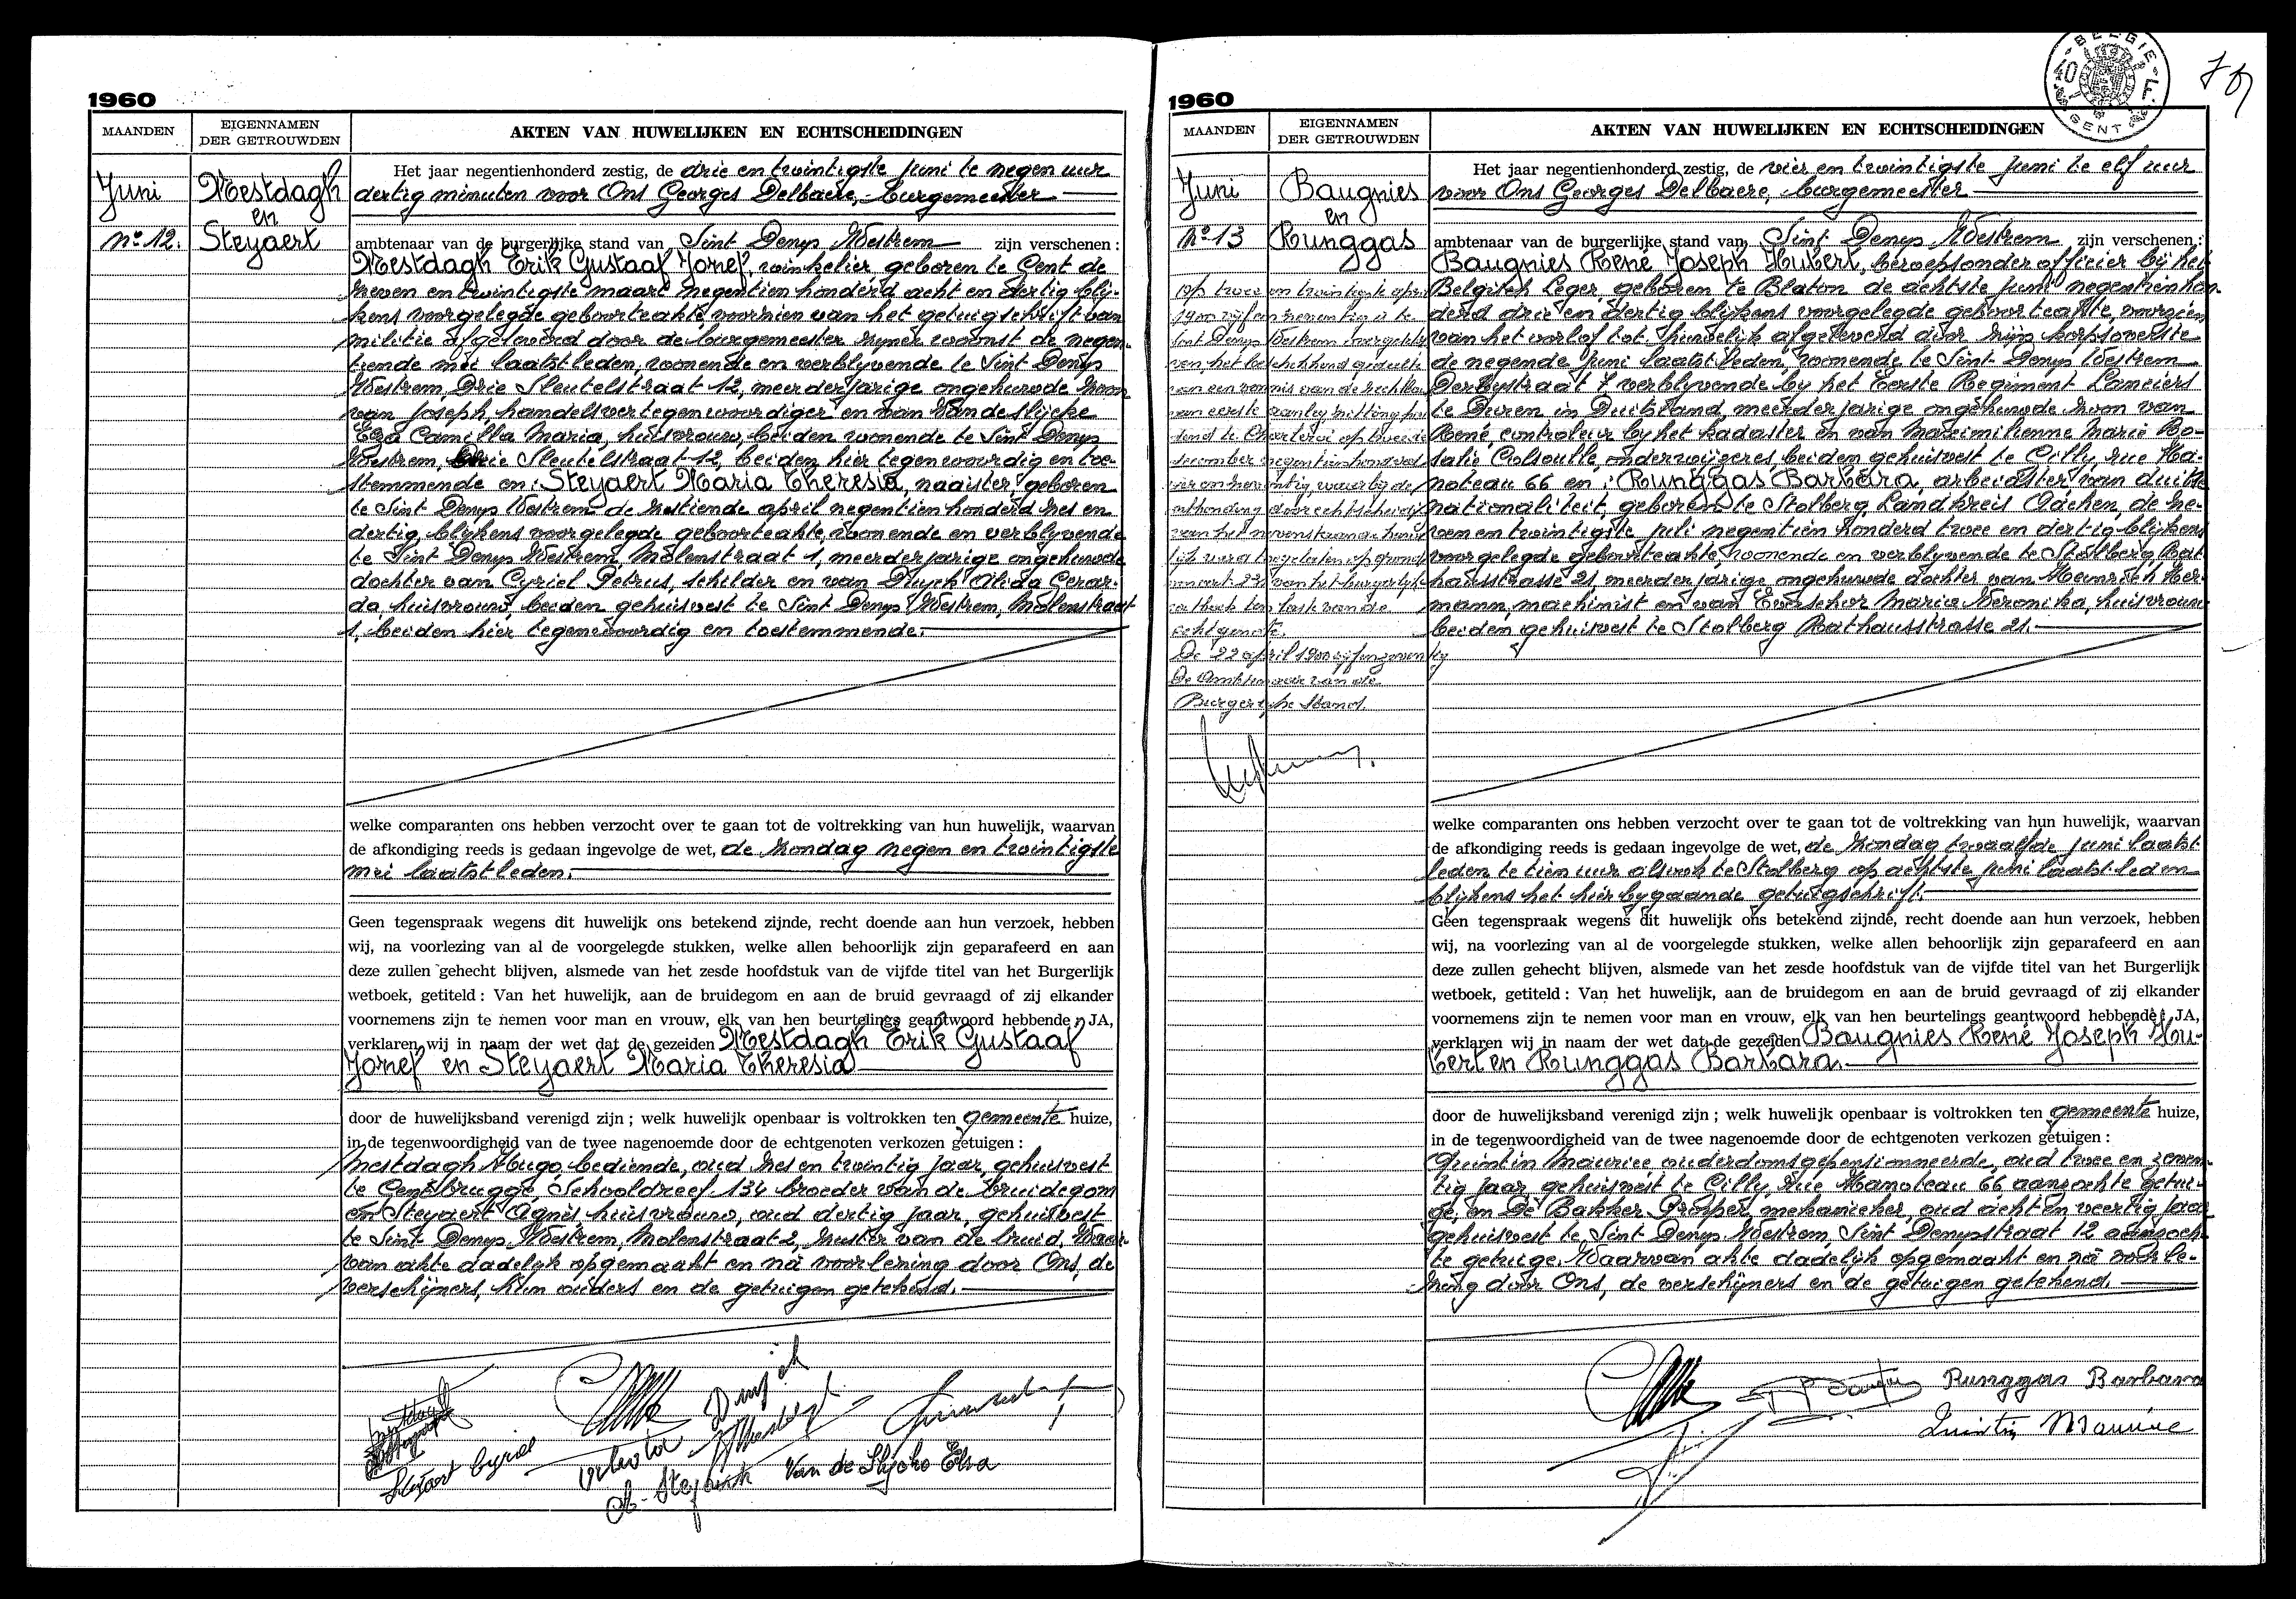 1960
MAANDEN
EIGENNAMEN
DER GETROUWDEN
AKTEN VAN HUWELIJKEN EN ECHTSCHEIDINGEN
Juni
Mestdagh
en
Nº 12.
Steyaert
Het jaar negentienhonderd zestig, de drie en twintigste juni te negen uur
dertig minuten voor Ons Georges Delbaere, burgemeester
ambtenaar van de burgerlijke stand van Sint Denys Westrem zijn verschenen :
Mestdagh Erik Gustaaf Jozef, winkelier, geboren te Gent de
zeven en twintigste maart negentien honderd acht en dertig blij-
kens voorgelegde geboorteakte, voorzien van het getuigschrift van
militie afgeleverd door de burgemeester zijner woonst de negen-
tiende mei laatstleden, wonende en verblyvende te Sint Denys
Westrem, Drie Sleutelstraat 12, meerderjarige ongehuwde zoon
van Joseph, handelsvertegenwoordiger en van Van de Slijcke
Elza Camilla Maria, huisvrouw, beiden wonende te Sint Denys
Westrem, Drie Sleutelstraat 12, beiden hier tegenwoordig en toe-
stemmende en : Steyaert Maria Theresia, naaister, geboren
te Sint Denys Westrem de zestiende april negentien honderd zes en
dertig, blijkens voorgelegde geboorteakte, wonende en verblyvende
te Sint Denys Westrem, Molenstraat 1, meerderjarige ongehuwde
dochter van Cyriel Petrus, schilder en van Dhuyck Alida Gerar-
da huisvrouw, beiden gehuisvest te Sint Denys Westrem, Molenstraat
1, beiden hier tegenwoordig en toestemmende.
welke comparanten ons hebben verzocht over te gaan tot de voltrekking van hun huwelijk, waarvan
de afkondiging reeds is gedaan ingevolge de wet, de zondag negen en twintigste
mei laatstleden.
Geen tegenspraak wegens dit huwelijk ons betekend zijnde, recht doende aan hun verzoek, hebben
wij, na voorlezing van al de voorgelegde stukken, welke allen behoorlijk zijn geparafeerd en aan
deze zullen gehecht blijven, alsmede van het zesde hoofdstuk van de vijfde titel van het Burgerlijk
wetboek, getiteld : Van het huwelijk, aan de bruidegom en aan de bruid gevraagd of zij elkander
voornemens zijn te nemen voor man en vrouw, elk van hen beurtelings geantwoord hebbende : JA,
verklaren wij in naam der wet dat de gezeiden Mestdagh Erik Gustaaf
Jozef en Steyaert Maria Theresia
door de huwelijksband verenigd zijn ; welk huwelijk openbaar is voltrokken ten gemeente huize,
in de tegenwoordigheid van de twee nagenoemde door de echtgenoten verkozen getuigen :
Mestdagh Hugo, bediende, oud zes en twintig jaar, gehuisvest
te Gentbrugge, Schooldreef 134 broeder van de bruidegom
en Steyaert Agnès, huisvrouw, oud dertig jaar, gehuisvest
te Sint Denys Westrem, Molenstraat 2, zuster van de bruid, Waar-
van akte dadelijk opgemaakt en na voorlezing door Ons, de
verschijners, hun ouders en de getuigen getekend.
Steyaert Cyriel
A. Steyaert
Van de Slycke Elza
1960
BELGIE
40
GENT
MAANDEN
EIGENNAMEN
DER GETROUWDEN
AKTEN VAN HUWELIJKEN EN ECHTSCHEIDINGEN
Juni
Baugnies
en
Nº 13
Runggas
op twee en twintigste april
1900 vijf en zeventig is te
Sint Denys Westrem overgeschre
ven, het beschikkend gedeelte
van een vonnis van de rechtbank
van eerste aanleg zitting hou
dend te Charleroi op twee
december negentienhonderd
vier en zeventig, waarbij de
ontbinding door echtscheiding
van het nevenstaande huwe
lijk werd toegelaten op grond
van art. 22 van het burgerlijk
wetboek ten laste van de
echtgenote.
De 22 april 1900 vijfenzeventig
De Ambtenaar van de
Burgerlijke Stand.
Het jaar negentienhonderd zestig, de vier en twintigste juni te elf uur
voor Ons Georges Delbaere, burgemeester
ambtenaar van de burgerlijke stand van Sint Denys Westrem zijn verschenen :
Baugnies René Joseph Hubert, beroepsonderofficier bij het
Belgisch Leger, geboren te Blaton de achtste juni negentienhon-
derd drie en dertig blijkens voorgelegde geboorteakte, voorzien
van het verlof tot huwelijk afgeleverd door zijn korpsoverste
de negende juni laatstleden, wonende te Sint Denys Westrem
Derbystraat 7 verblyvende by het Eerste Regiment Lanciers
te Düren in Duitsland, meerderjarige ongehuwde zoon van
René, controleur by het kadaster en van Maximilienne Marie Ro-
salie Colsoulle, onderwijzeres, beiden gehuisvest te Gilly, rue Ha-
noteau 66 en : Runggas Barbara, arbeidster van duitse
nationaliteit, geboren te Stolberg, Landkreis Aachen, de ze-
ven en twintigste juli negentien honderd twee en dertig blijkens
voorgelegde geboorteakte, wonende en verblyvende te Stolberg, Rat-
hausstrasse 21, meerderjarige ongehuwde dochter van Heinrich Her-
mann, machinist en van Everschor Maria Veronika, huisvrouw
beiden gehuisvest te Stolberg Rathausstrasse 21.
welke comparanten ons hebben verzocht over te gaan tot de voltrekking van hun huwelijk, waarvan
de afkondiging reeds is gedaan ingevolge de wet, de zondag twaalfde juni laatst
leden te tien uur alsook te Stolberg op achtste juni laatstleden
blijkens het hierbygaande getuigschrift.
Geen tegenspraak wegens dit huwelijk ons betekend zijnde, recht doende aan hun verzoek, hebben
wij, na voorlezing van al de voorgelegde stukken, welke allen behoorlijk zijn geparafeerd en aan
deze zullen gehecht blijven, alsmede van het zesde hoofdstuk van de vijfde titel van het Burgerlijk
wetboek, getiteld : Van het huwelijk, aan de bruidegom en aan de bruid gevraagd of zij elkander
voornemens zijn te nemen voor man en vrouw, elk van hen beurtelings geantwoord hebbende : JA,
verklaren wij in naam der wet dat de gezeiden Baugnies René Joseph Hu-
bert en Runggas Barbara.
door de huwelijksband verenigd zijn ; welk huwelijk openbaar is voltrokken ten gemeente huize,
in de tegenwoordigheid van de twee nagenoemde door de echtgenoten verkozen getuigen :
Quintin Maurice ouderdomsgepensionneerde, oud twee en zeven-
tig jaar gehuisvest te Gilly, Rue Hanoteau 66 aanzochte getui-
ge, en De Bakker Prosper, mekanieker, oud acht en veertig jaar
gehuisvest te Sint Denys Westrem, Sint Denysstraat 12 aanzoch-
te getuige. Waarvan akte dadelijk opgemaakt en na voorle-
zing door Ons, de verschijners en de getuigen getekend.
Runggas Barbara
Quintin Maurice